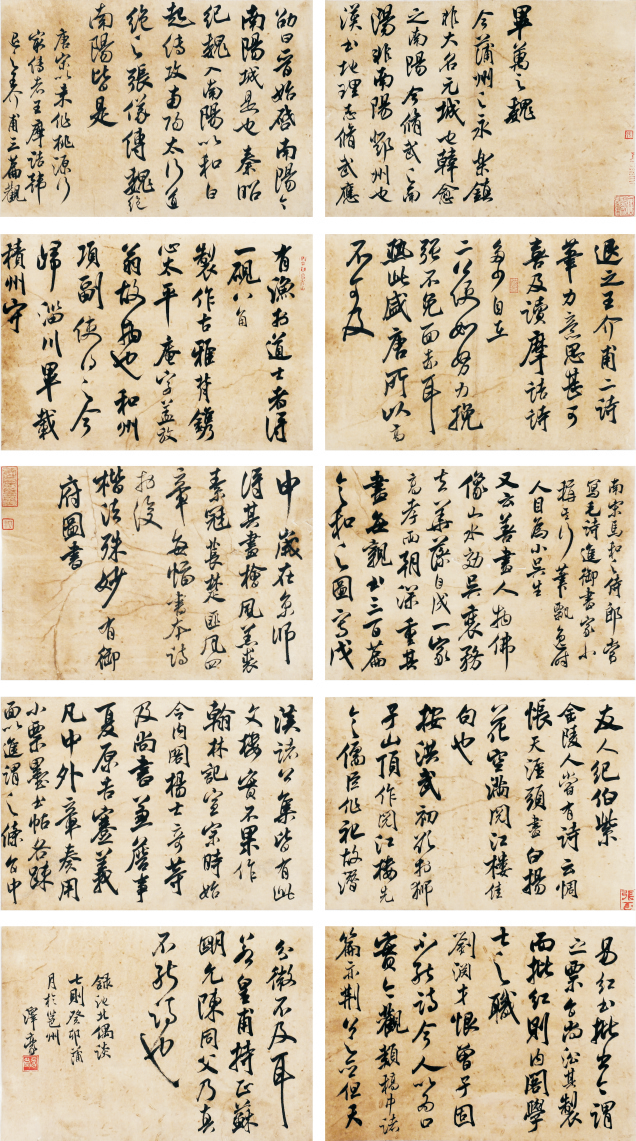 畢萬之魏
今蒲州之永樂鎮
非大名元城也韓愈
之南陽今脩武之南
陽非南陽鄧州也
漢書地理志脩武應
劭曰晉始啓南陽今
南陽城是也秦昭
紀魏入南陽以和白
起傳攻南陽太行道
絕之張儀傳魏絕
南陽皆是
唐宋以來作桃源行
最傳者王摩詰韓
退之王介甫三篇觀
退之王介甫二詩
筆力意思甚可
喜及讀摩詰詩
多少自在
二公便如努力挽
強不免面赤耳
熱此盛唐所以高
不可及
有漁於道士者得
一硯八角
製作古雅背鐫
心太平庵字蓋放
翁故物也和州
項副使得之今
歸淄川畢載
積州守
南宋馬和之侍郎嘗
寫毛詩進御書家小
其行筆飄逸時
人目為小吳生
又云善畫人物佛
像山水効吳裝務
去華藻自成一家
高孝兩朝深重其
畫每親書三百篇
令和之圖寫戊
申歲在京師
得其畫檜風羔裘
素冠萇楚匪風四
章每幅書本詩
於後
楷法殊妙有御
府圖書
友人紀伯紫
金陵人嘗有詩云惆
悵天涯頭盡白楊
花空滿閱江樓佳
句也
按洪武初欲於獅
子山頂作閱江樓先
令儒臣作記故潛
溪諸公集皆有此
文樓實不果作
翰林記宣宗時始
令內閣楊士奇等
及尚書兼詹事
夏原吉蹇義
凡中外章奏用
小票墨書帖各疏
面以進謂之條旨中
易紅書批出今謂
之票旨尚沿其製
而批紅則內閣學
士之職
劉淵才恨曾子固
不能詩今人以為口
實今觀類稿中諸
篇亦荊公之亞但天
分微不及耳
若皇甫持正蘇
明允陳同父乃真
不能詩也
錄池北偶談
七則癸卯蒲
月於邕州
澤